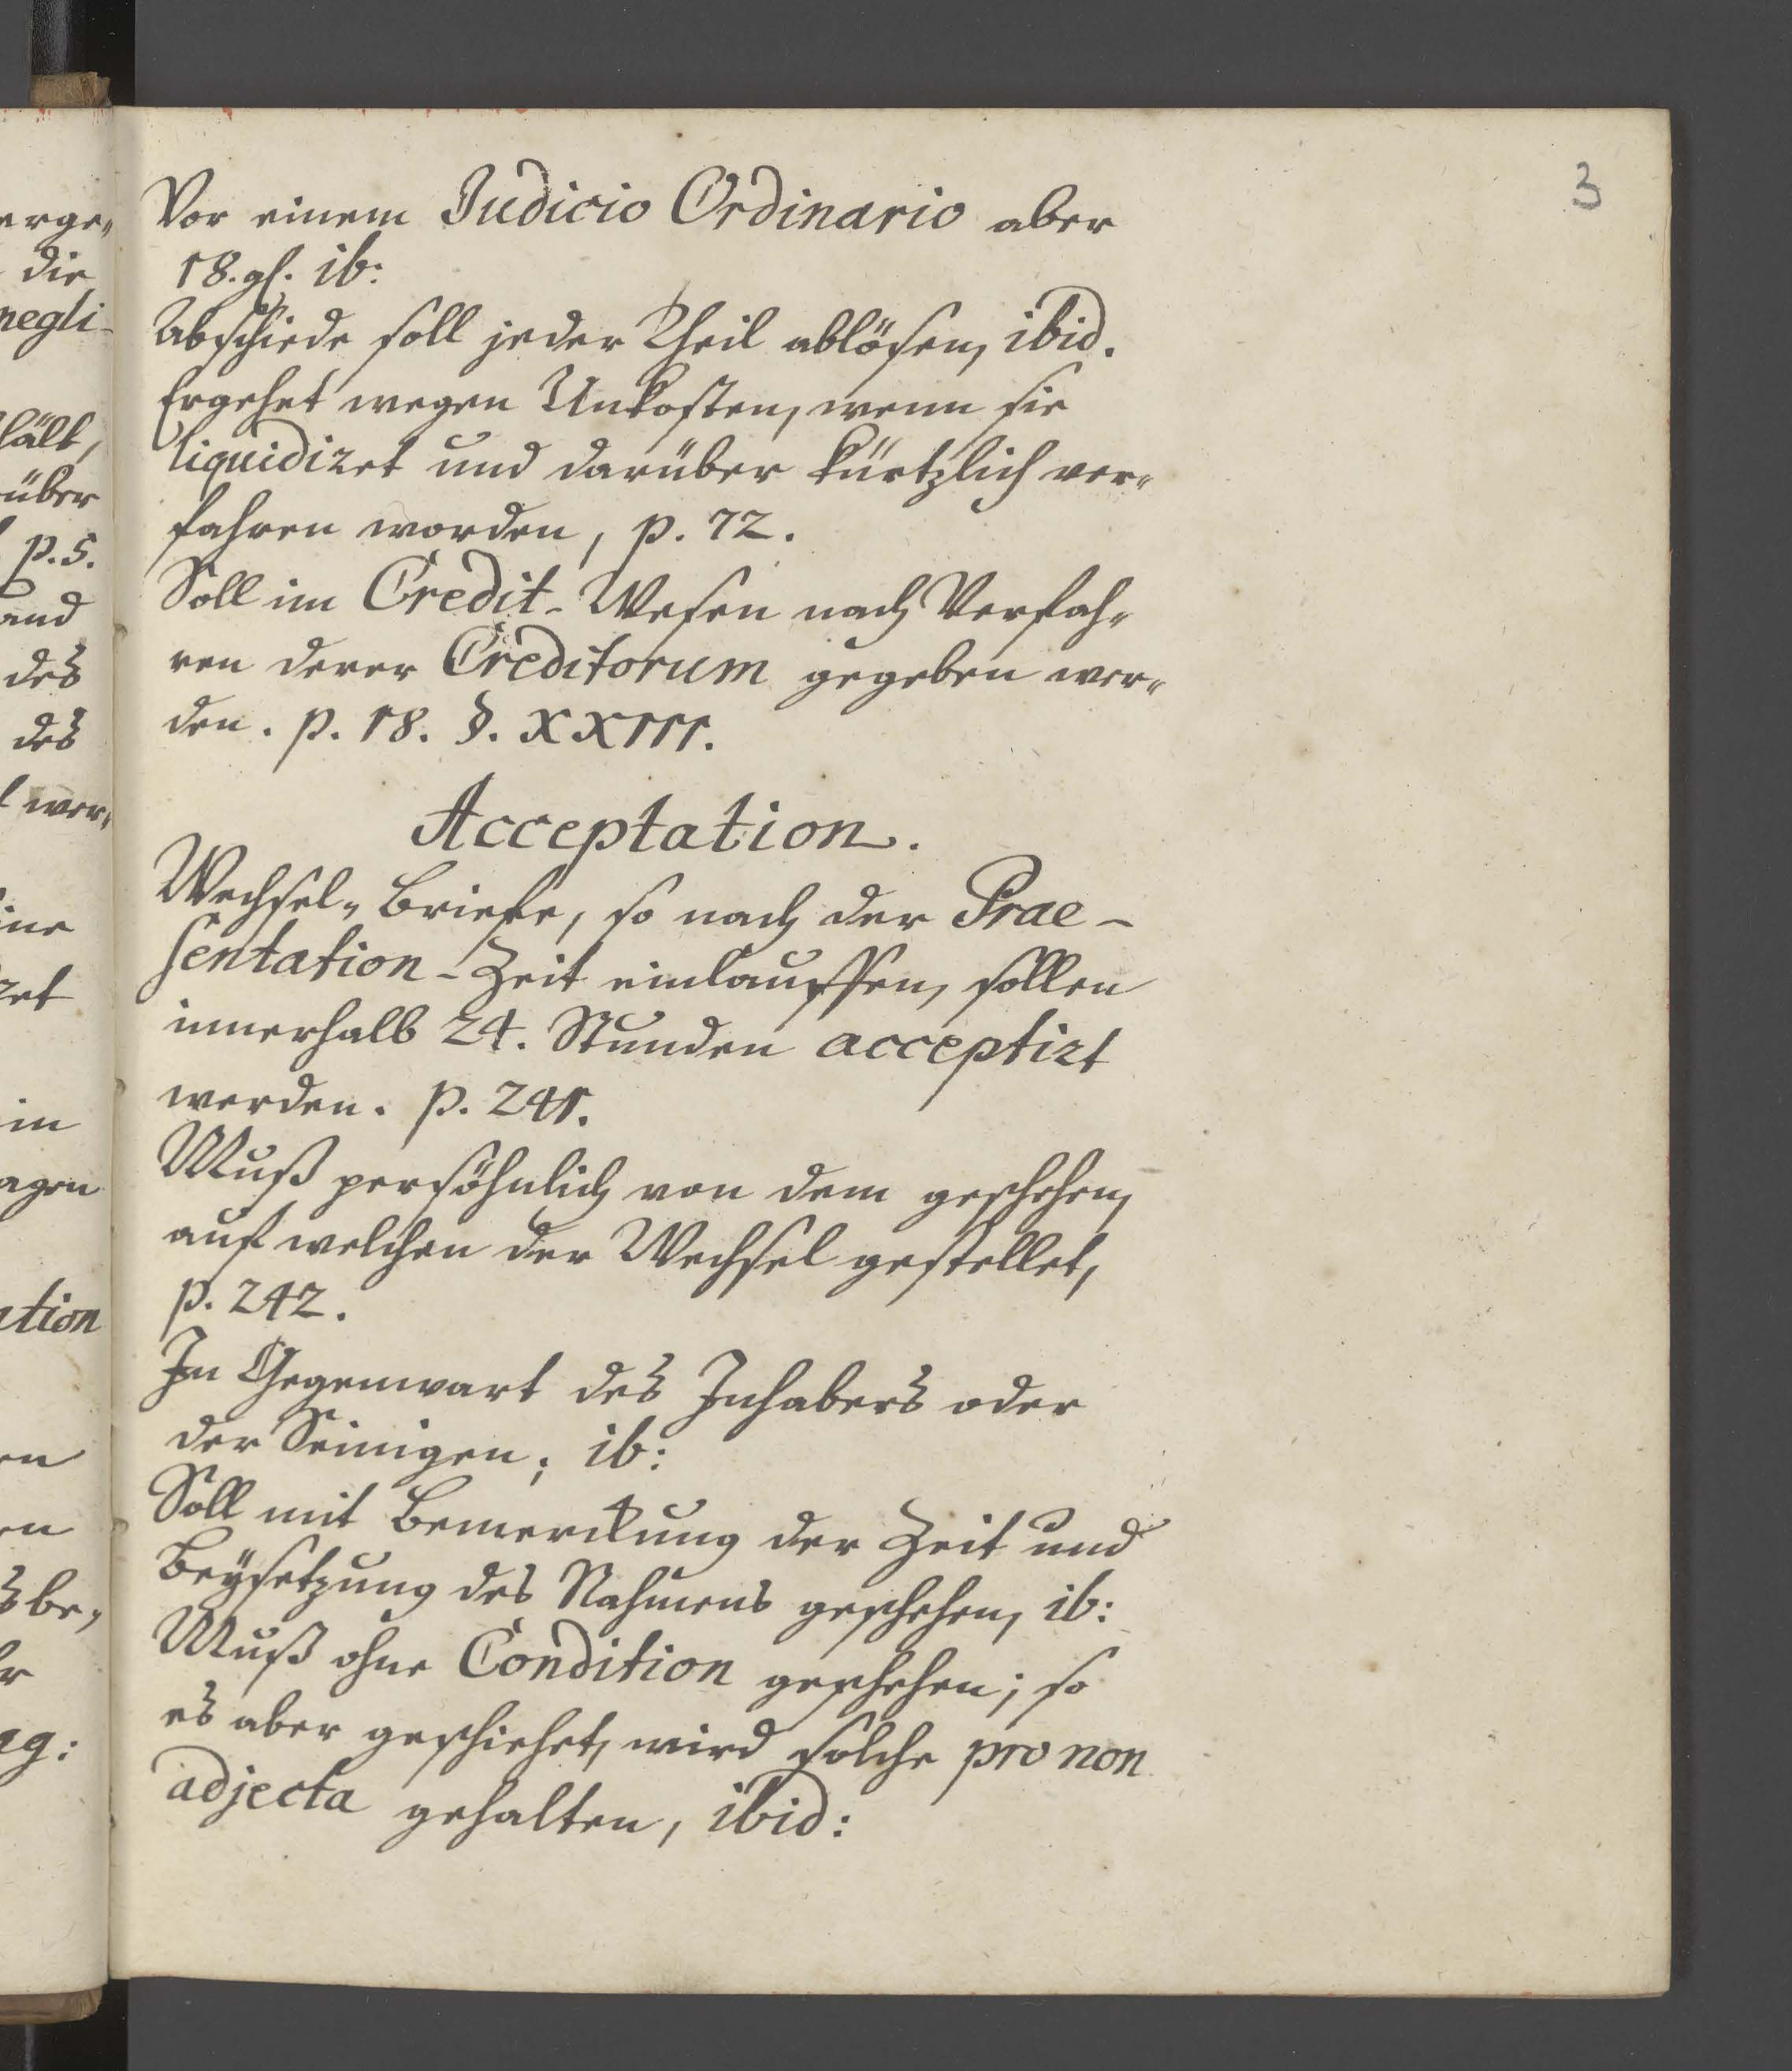 3
Vor einem Judicio Ordinario aber
18. gl. ib:
Abschiede soll jeder Theil ablösen, ibid.
Ergehet wegen Unkosten, wenn sie
liquidiret und darüber kürtzlich ver„
fahren worden, p. 72.
Soll im Credit-Wesen nach Verfah„
ren derer Creditorum gegeben wer„
den. p. 18. §. XXIII.
Acceptation.
Wechsel„Briefe, so nach der Prae-
sentation-Zeit einlauffen, sollen
innerhalb 24. Stunden acceptirt
werden. p. 241.
Muß persöhnlich von dem geschehen,
auf welchen der Wechsel gestellet,
p. 242.
In Gegenwart des Inhabers oder
der Seinigen; ib:
Soll mit Bemerckung der Zeit und
Beÿsetzung des Nahmens geschehen, ib:
Muß ohne Condition geschehen; so
es aber geschiehet, wird solche pro non
adjecta gehalten, ibid: